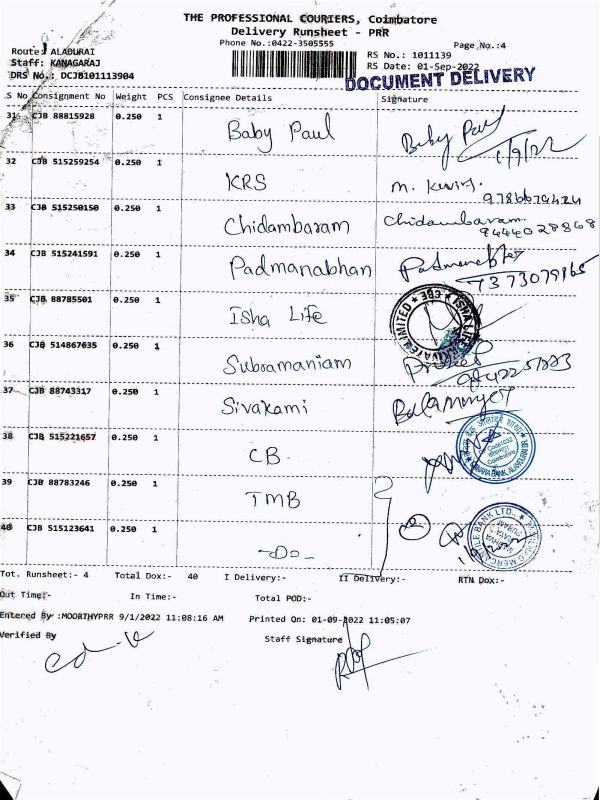 THE PROFESSIONAL COURIERS, Coimbatore
Delivery Runsheet - PRR
Phone No.:0422-3505555
Page No.:4
Route: ALADURAI
RS No.: 1011139
Staff: KANAGARAJ
RS Date: 01-Sep-2022
DRS No.: DCJB101113904
DOCUMENT DELIVERY
S No Consignment No Weight PCS Consignee Details Signature
31 CJB 88815928 0.250 1 Baby Paul Baby Paul
1/9/22
32 CJB 515259254 0.250 1 KRS
33 CJB 515250150 0.250 1 Chidambaram Chidambaram
9444028868
34 CJB 515241591 0.250 1 Padmanabhan
7373079165
35 CJB 88785501 0.250 1 Isha Life
36 CJB 514867035 0.250 1 Subramaniam
37 CJB 88743317 0.250 1 Sivakami
38 CJB 515221657 0.250 1 CB
39 CJB 88783246 0.250 1 TMB
40 CJB 515123641 0.250 1 -Do-
Tot. Runsheet:- 4 Total Dox:- 40 I Delivery:- II Delivery:- RTN Dox:-
Out Time:- In Time:- Total POD:-
Entered By :MOORTHYPRR 9/1/2022 11:08:16 AM Printed On: 01-09-2022 11:05:07
Verified By Staff Signature